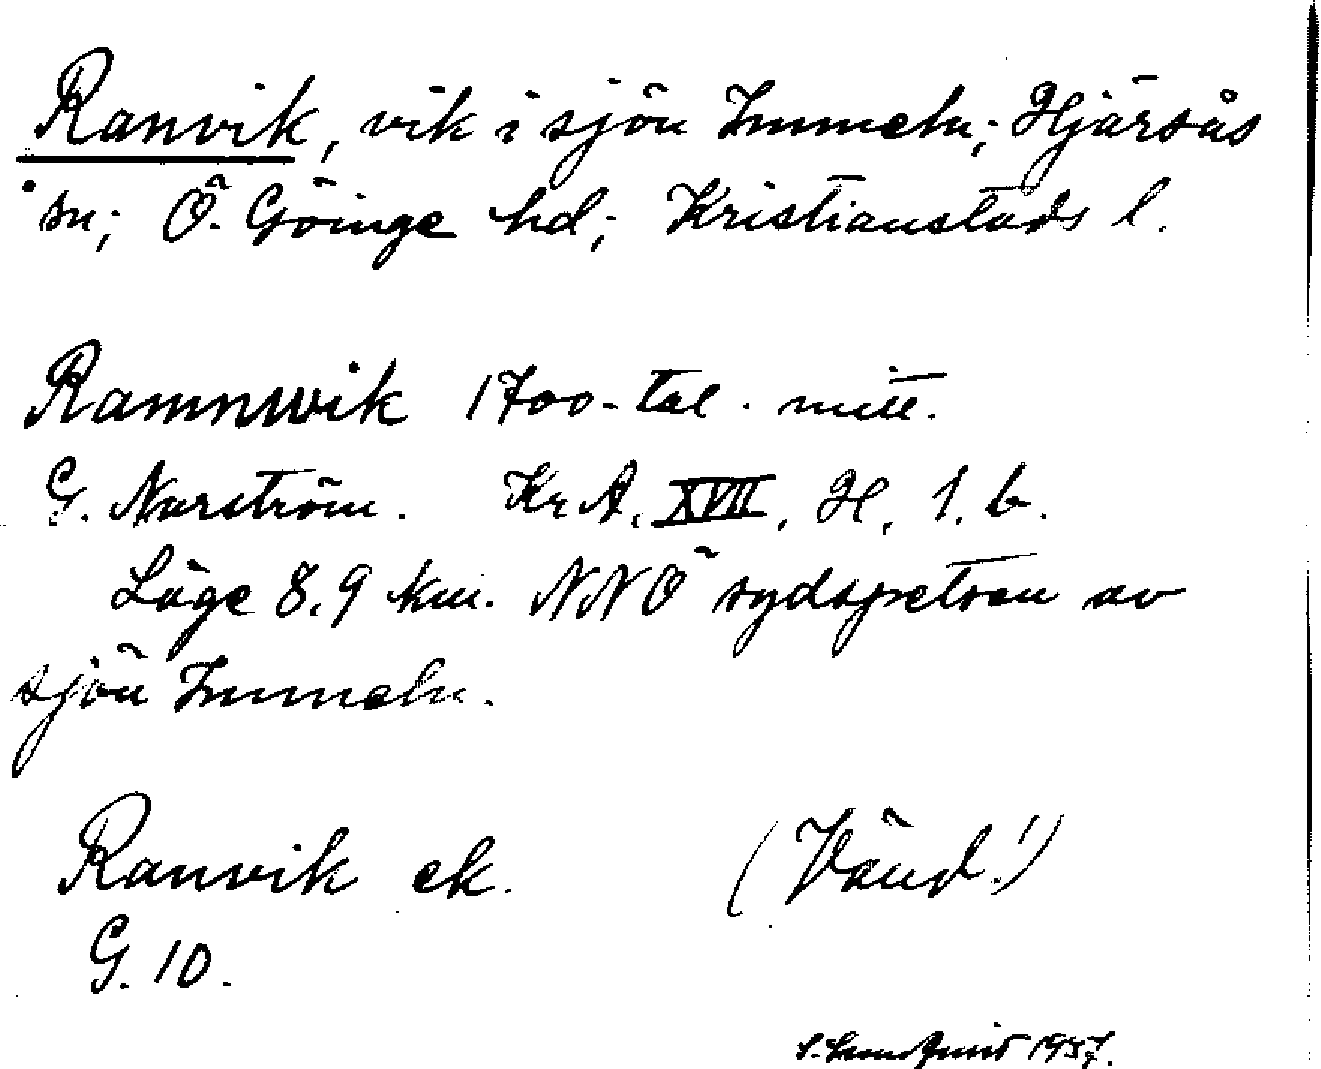 Ranvik, vik i sjön Immeln; Hjärsås
sn; Ö. Göinge hd; Kristianstads l.
Ramnwik 1700-tal. mitt.
G. Norström. Kr A. XVII, H, 1. b.
Läge 8.9 km. NNÖ sydspetsen av
sjön Immeln.
Ranvik ek. (Vänd!)
G. 10.
1937.